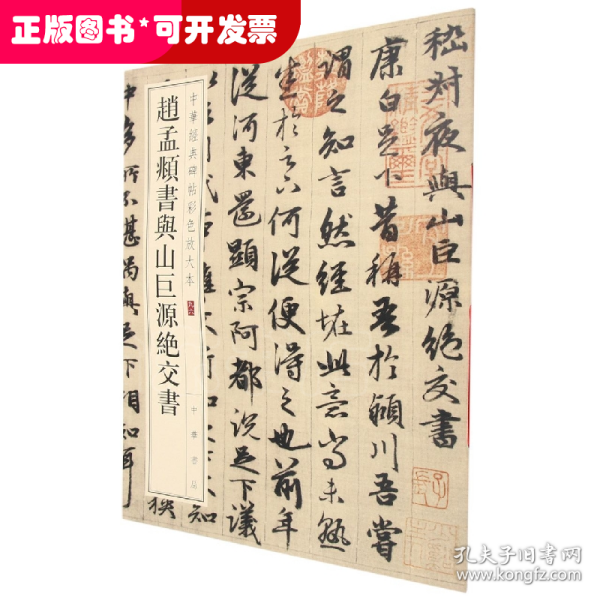 正版图书*可开发票
中華經典碑帖彩色放大本
趙孟頫書與山巨源絶交書
中華書局
嵇叔夜與山巨源絶交書
康白足下昔稱吾於潁川吾嘗
謂之知言然經怪此意尚未熟
悉於足下何從便得之也前年
從河東還顯宗阿都說足下議
中多所不堪偶與足下相知
狹
孔夫子旧书网
www.kongfz.com